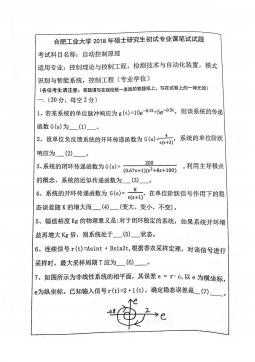 合肥工业大学 2018 年硕士研究生初试专业课笔试试题
考试科目名称：自动控制原理
适用专业：控制理论与控制工程，检测技术与自动化装置，模式
识别与智能系统，控制工程（专业学位）
（各位考生请注意：答题请写在我校统一发放的答题纸上，写在试卷上的一律无效）
一、（20分，每空2分）
1、若某系统的单位脉冲响应为 g(t)=10e^{-0.2t}+5e^{-0.5t}，则该系统的传递
函数 G(s)为__(1)__。
2、设单位负反馈系统的开环传递函数为 G(s)=4/s(s+2)，系统的单位阶跃
响应为__(2)__。
3、系统的闭环传递函数为 G(s)=200/(0.67s+1)(s²+8s+100)，利用主导极点
的概念，系统的近似传递函数为__(3)__。
4、系统的开环传递函数为 G(s)=K/s(s+1)，在单位阶跃信号作用下的稳
态误差随 K 的增大而__(4)__(变大、变小、不变)。
5、幅值裕度 Kg 的物理意义是：对于闭环稳定的系统，如果系统开环增
益再增大 Kg 倍，则系统处于__(5)__状态。
6、连续信号 r(t)=Asint + Bsin3t，根据香农采样定理，对该信号进行
采样时，最大采样周期 T 应为__(6)__。
7、如图所示为非线性系统的相平面，其误差 e = r- c，以 e 为横坐标，
ė为纵坐标。已知输入信号 r(t)=2•1(t)，确定稳态误差是__(7)__。